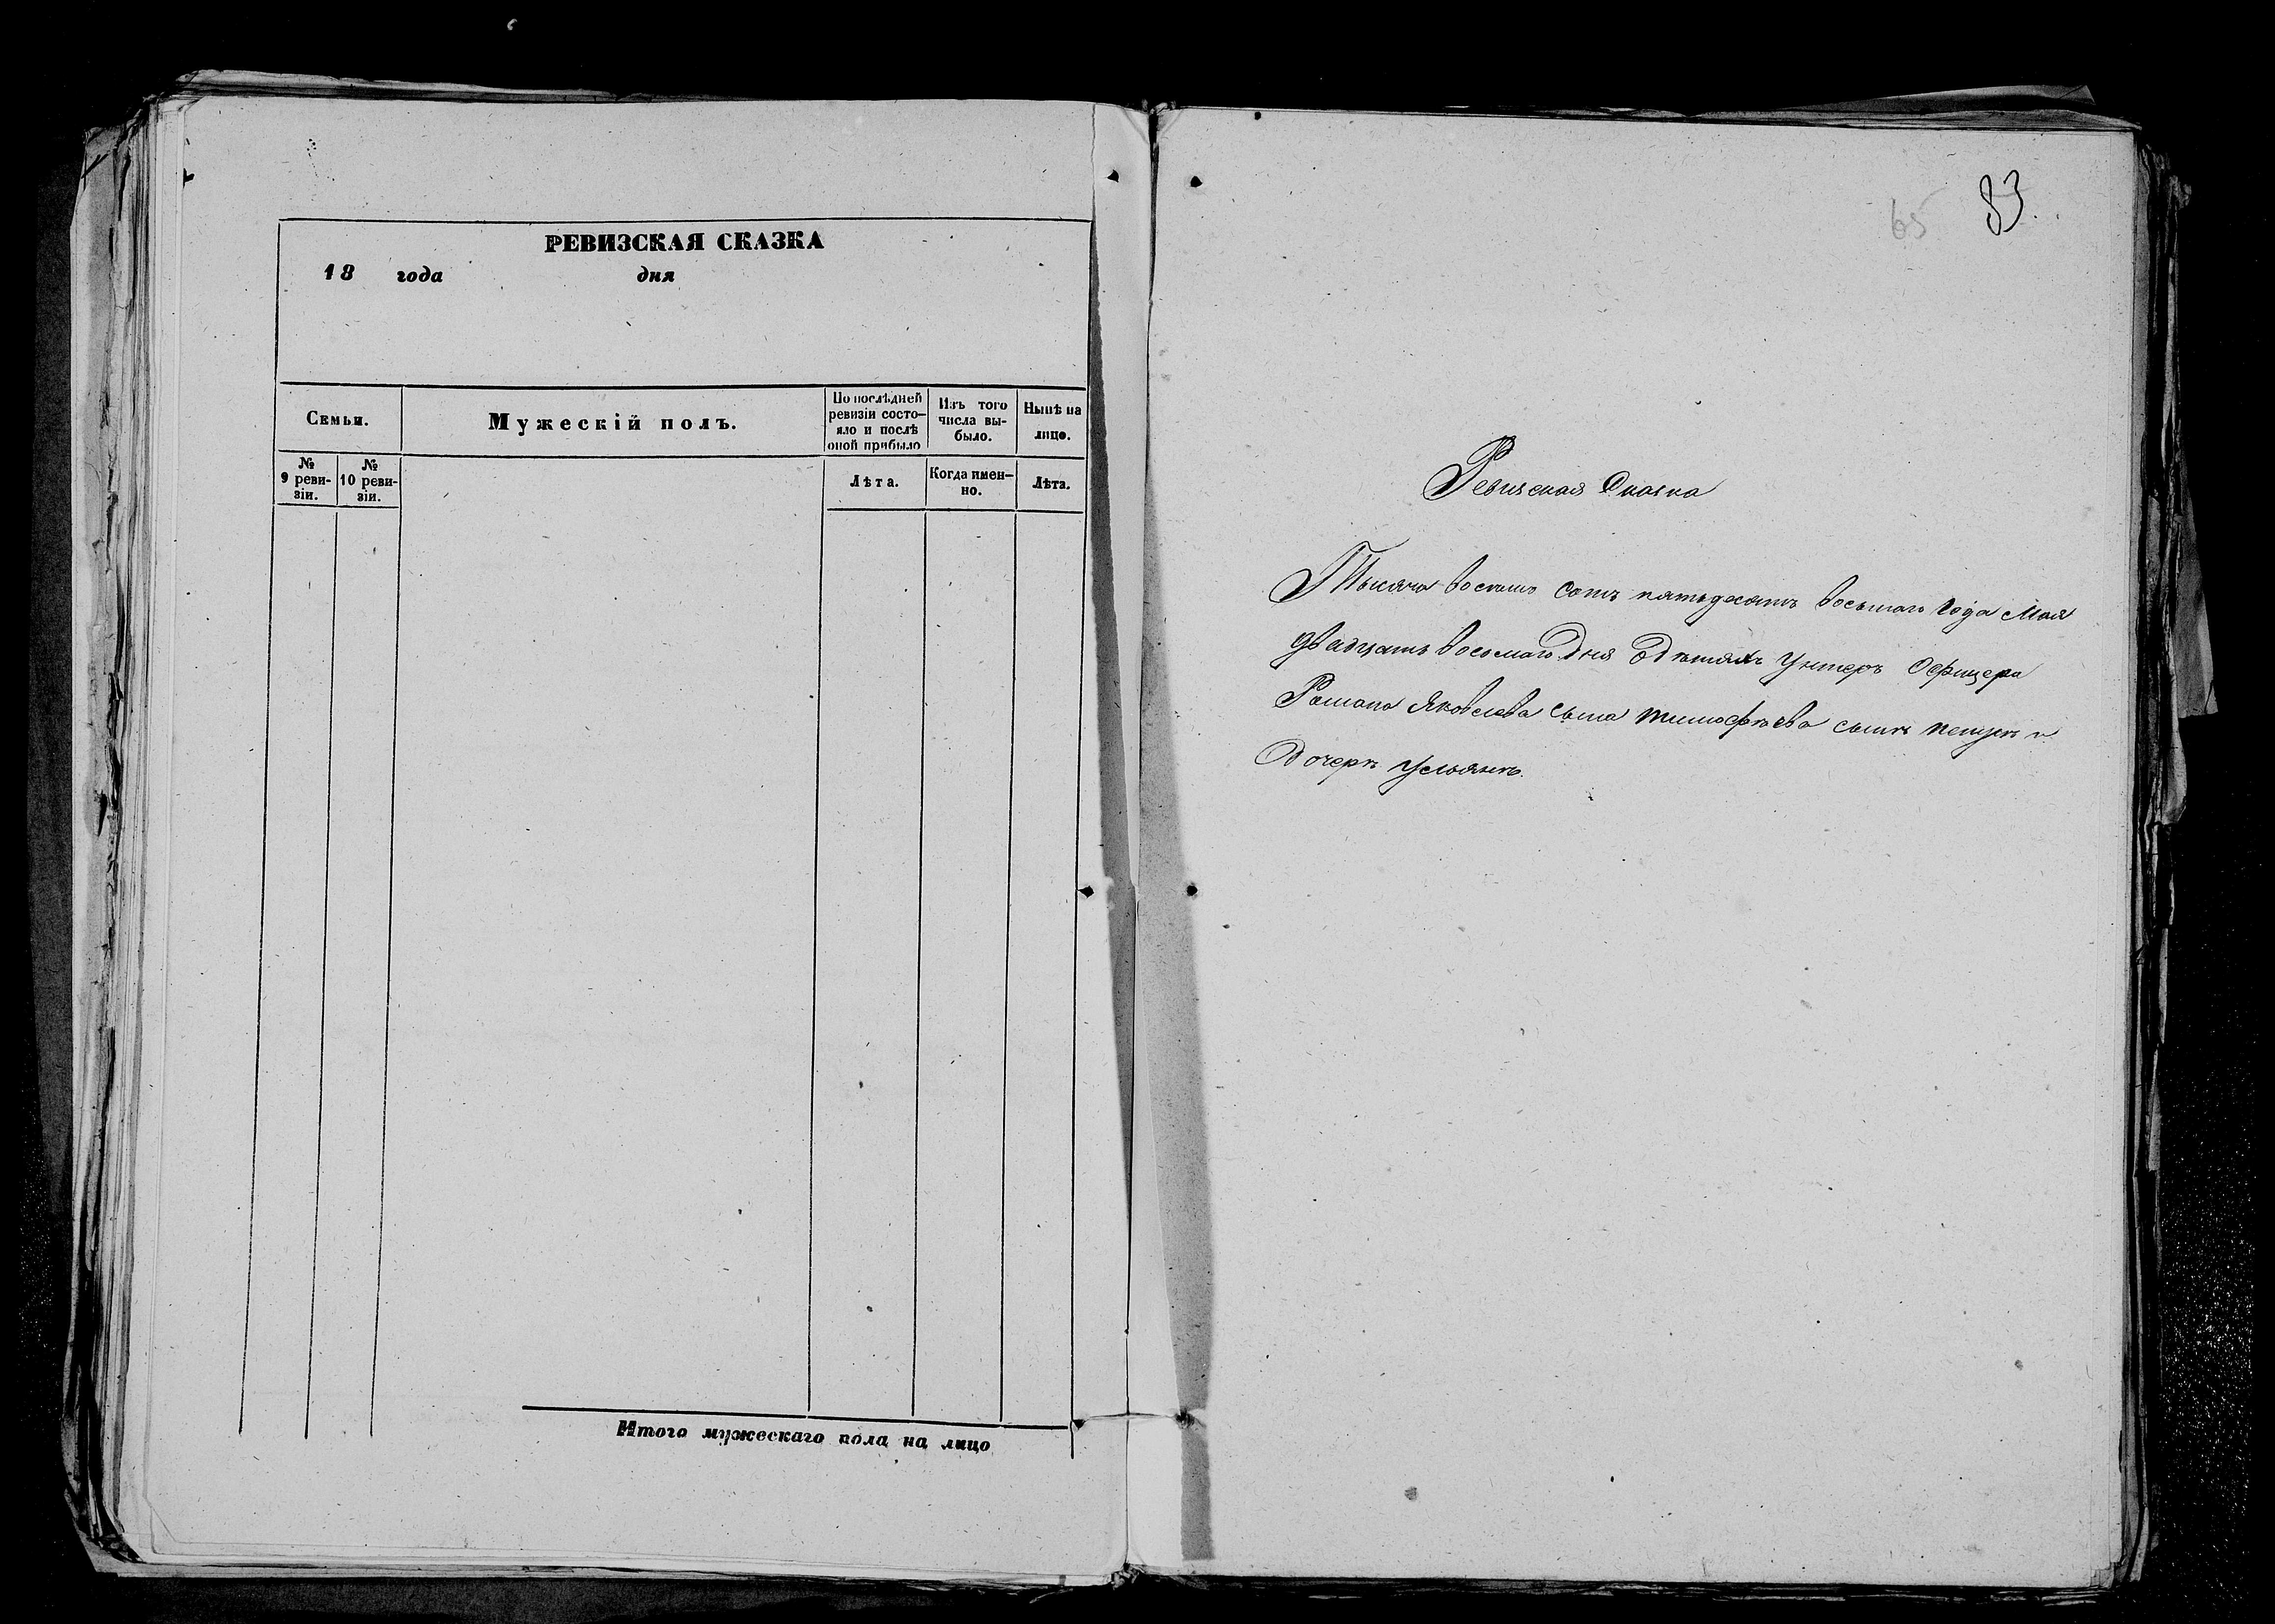 РЕВИЗСКАЯ СКАЗКА
18 года дня
Семьи.
Мужескій полъ.
По послѣдней ревизіи состо-
яло и послѣ
оной прибыло
Изъ того
числа вы-
было.
Нынѣ на
лицо.
№
9 реви-
зіи.
№
10 реви-
зіи.
Лѣта.
Когда имен-
но.
Лѣта.
Итого мужескаго пола на лицо
65 83.
Ревизская Сказка
Тысяча восемь сотъ пятьдесятъ восьмаго года Мая
двадцать восьмаго дня О дѣтяхъ Унтеръ Офицера
Романа Яковлева сына тимофѣева сынѣ и
Дочерѣ Ульянѣ.